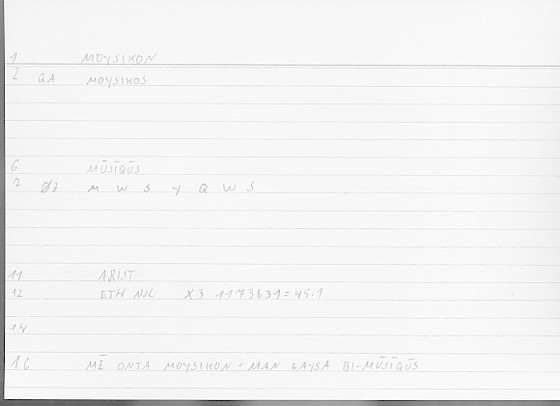 1 MOYSIKON
2 QA MOYSIKOS
6 MŪSĪQŪS
7 M W S Y Q W S
11 ARIST
12 ETH NIC X3 1173b31=45.1
14
16 MĒ ONTA MOYSIKON = MAN LAYSA BI-MŪSĪQŪS